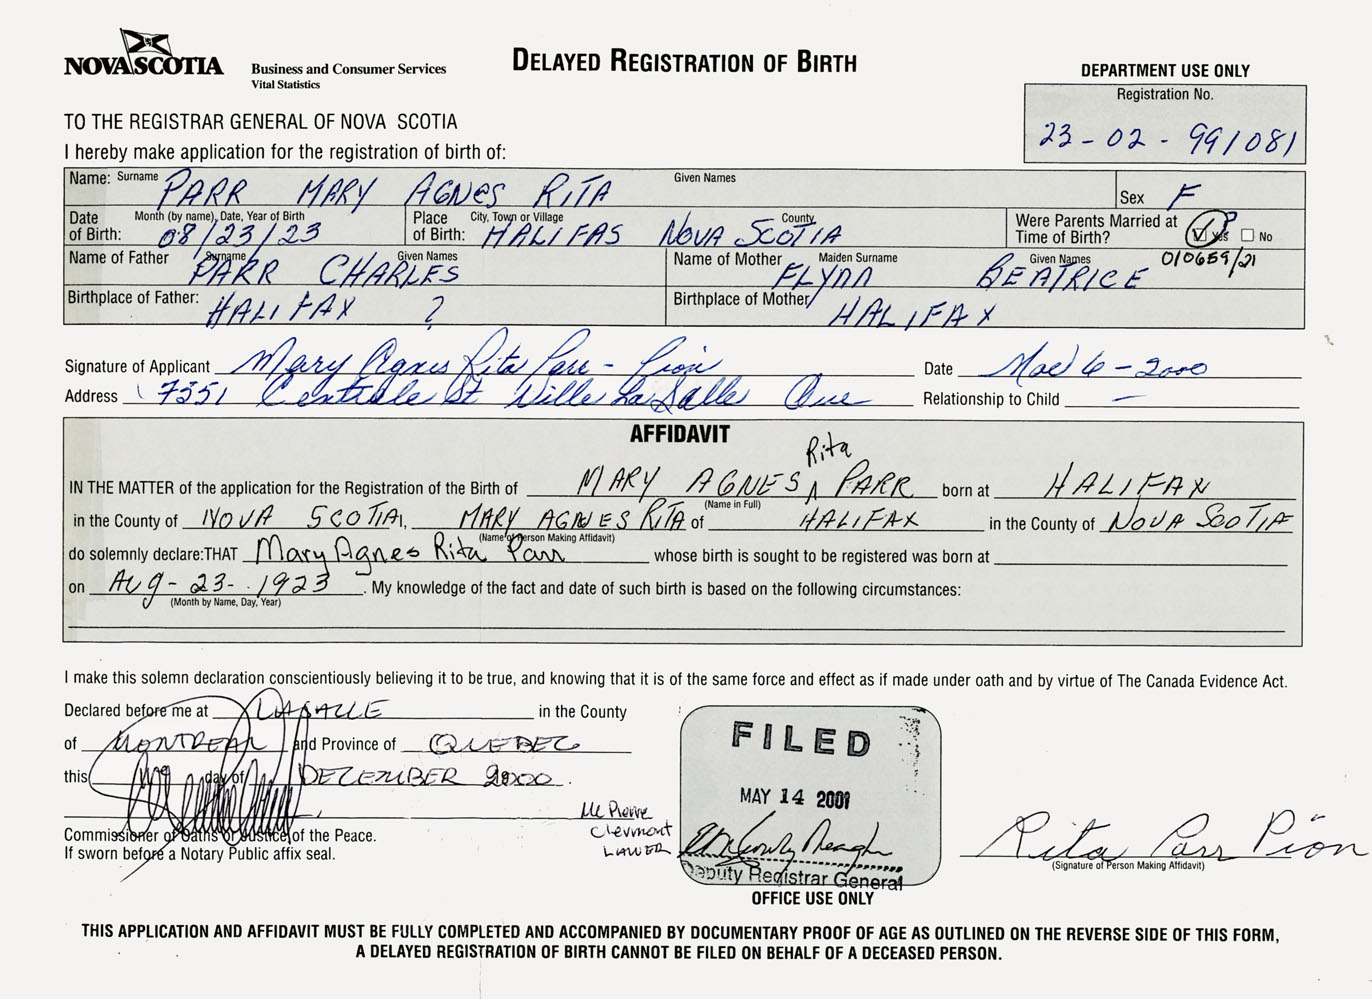 NOVA SCOTIA
Business and Consumer Services
Vital Statistics
DELAYED REGISTRATION OF BIRTH
DEPARTMENT USE ONLY
Registration No.
23-02-991081
TO THE REGISTRAR GENERAL OF NOVA SCOTIA
I hereby make application for the registration of birth of:
Name: Surname PARR MARY AGNES RITA Given Names
Sex F
Date of Birth: Month (by name), Date, Year of Birth 08/23/23
Place of Birth: City, Town or Village HALIFAS NOVA SCOTIA County
Were Parents Married at Time of Birth? Yes No
010659/21
Name of Father Surname PARR CHARLES Given Names
Name of Mother Maiden Surname FLYNN Given Names BEATRICE
Birthplace of Father: HALIFAX ?
Birthplace of Mother HALIFAX
Signature of Applicant Mary Agnes Rita Parr - Pion
Date 6 - 2000
Address 7351 Centrale St Ville LaSalle Que
Relationship to Child —
AFFIDAVIT
Rita
IN THE MATTER of the application for the Registration of the Birth of MARY AGNES PARR born at HALIFAX
(Name in Full)
in the County of NOVA SCOTIA, MARY AGNES RITA of HALIFAX in the County of NOVA SCOTIA
(Name of Person Making Affidavit)
do solemnly declare: THAT Mary Agnes Rita Parr whose birth is sought to be registered was born at
on AUG - 23 - 1923. My knowledge of the fact and date of such birth is based on the following circumstances:
(Month by Name, Day, Year)
I make this solemn declaration conscientiously believing it to be true, and knowing that it is of the same force and effect as if made under oath and by virtue of The Canada Evidence Act.
Declared before me at LASALLE in the County
of MONTREAL and Province of QUEBEC
this day of DECEMBER 2000.
Me Pierre
Clermont
LAWER
Commissioner of Oaths or Justice of the Peace.
If sworn before a Notary Public affix seal.
FILED
MAY 14 2001
Deputy Registrar General
OFFICE USE ONLY
Rita Parr Pion
(Signature of Person Making Affidavit)
THIS APPLICATION AND AFFIDAVIT MUST BE FULLY COMPLETED AND ACCOMPANIED BY DOCUMENTARY PROOF OF AGE AS OUTLINED ON THE REVERSE SIDE OF THIS FORM,
A DELAYED REGISTRATION OF BIRTH CANNOT BE FILED ON BEHALF OF A DECEASED PERSON.